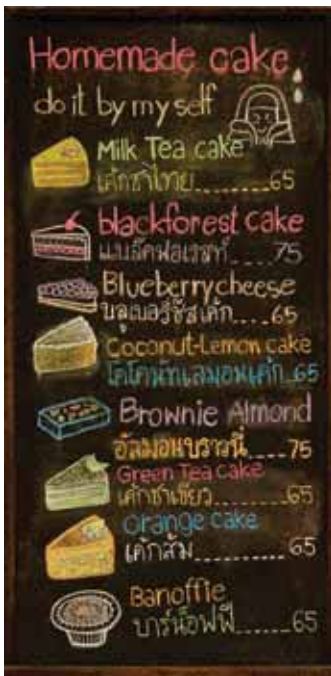 Homemade cake
do it by my self
Milk Tea cake
เค้กชาไทย........65
blackforest cake
แบล็คฟอเรสท์....75
Blueberrycheese
บลูเบอรี่ชีสเค้ก....65
Coconut-Lemon cake
โคโคนัทเลมอนเค้ก 65
Brownie Almond
อัลมอนบราวนี่....75
Green Tea cake
เค้กชาเขียว........65
orange cake
เค้กส้ม..........65
Banoffie
บาร์น็อฟฟี่......65